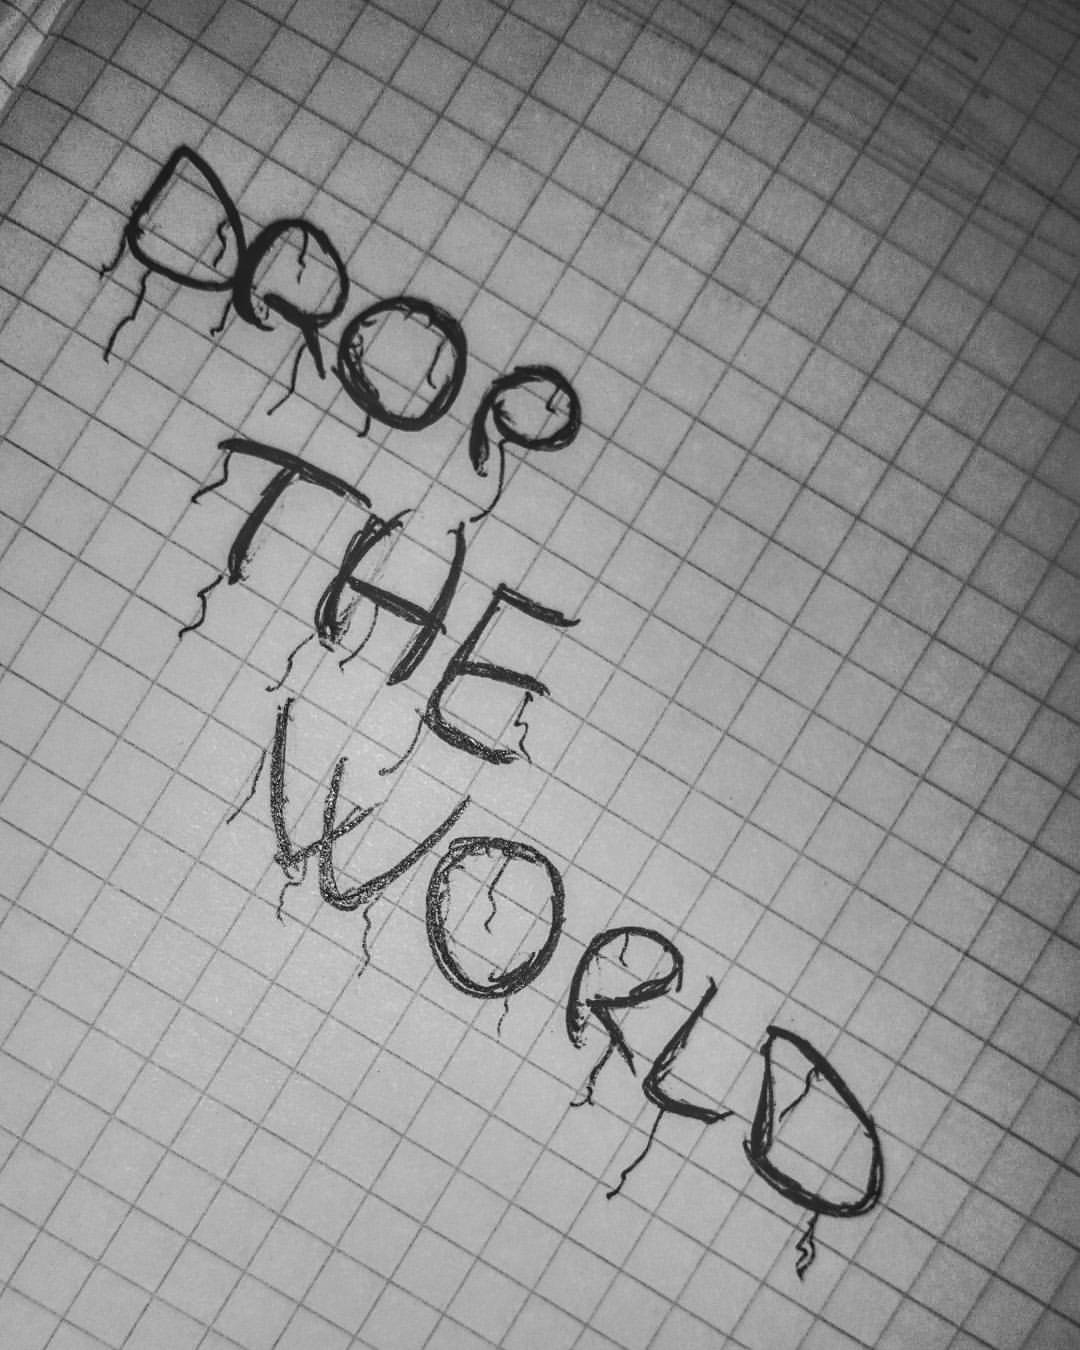 DROP
THE
WORLD